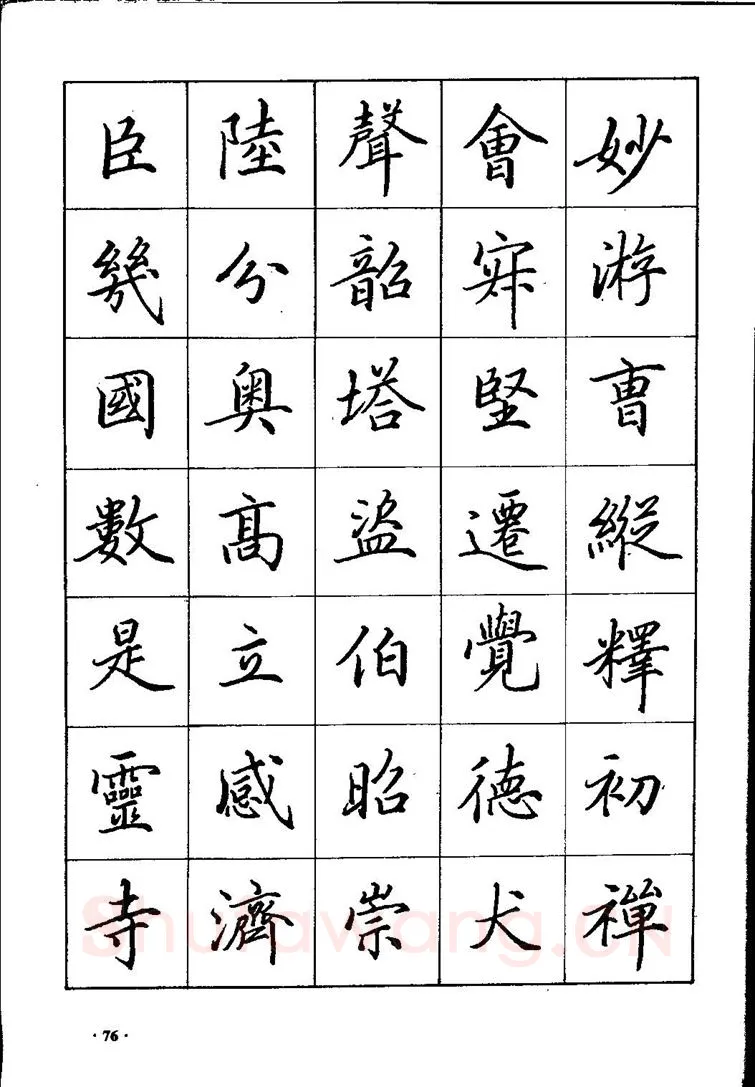 妙游曹縱釋初禪
會寂堅遷覺德犬
聲韶塔盜伯昭崇
陸分奥髙立感濟
臣幾國數是靈寺
·76·
Shufawang.CN